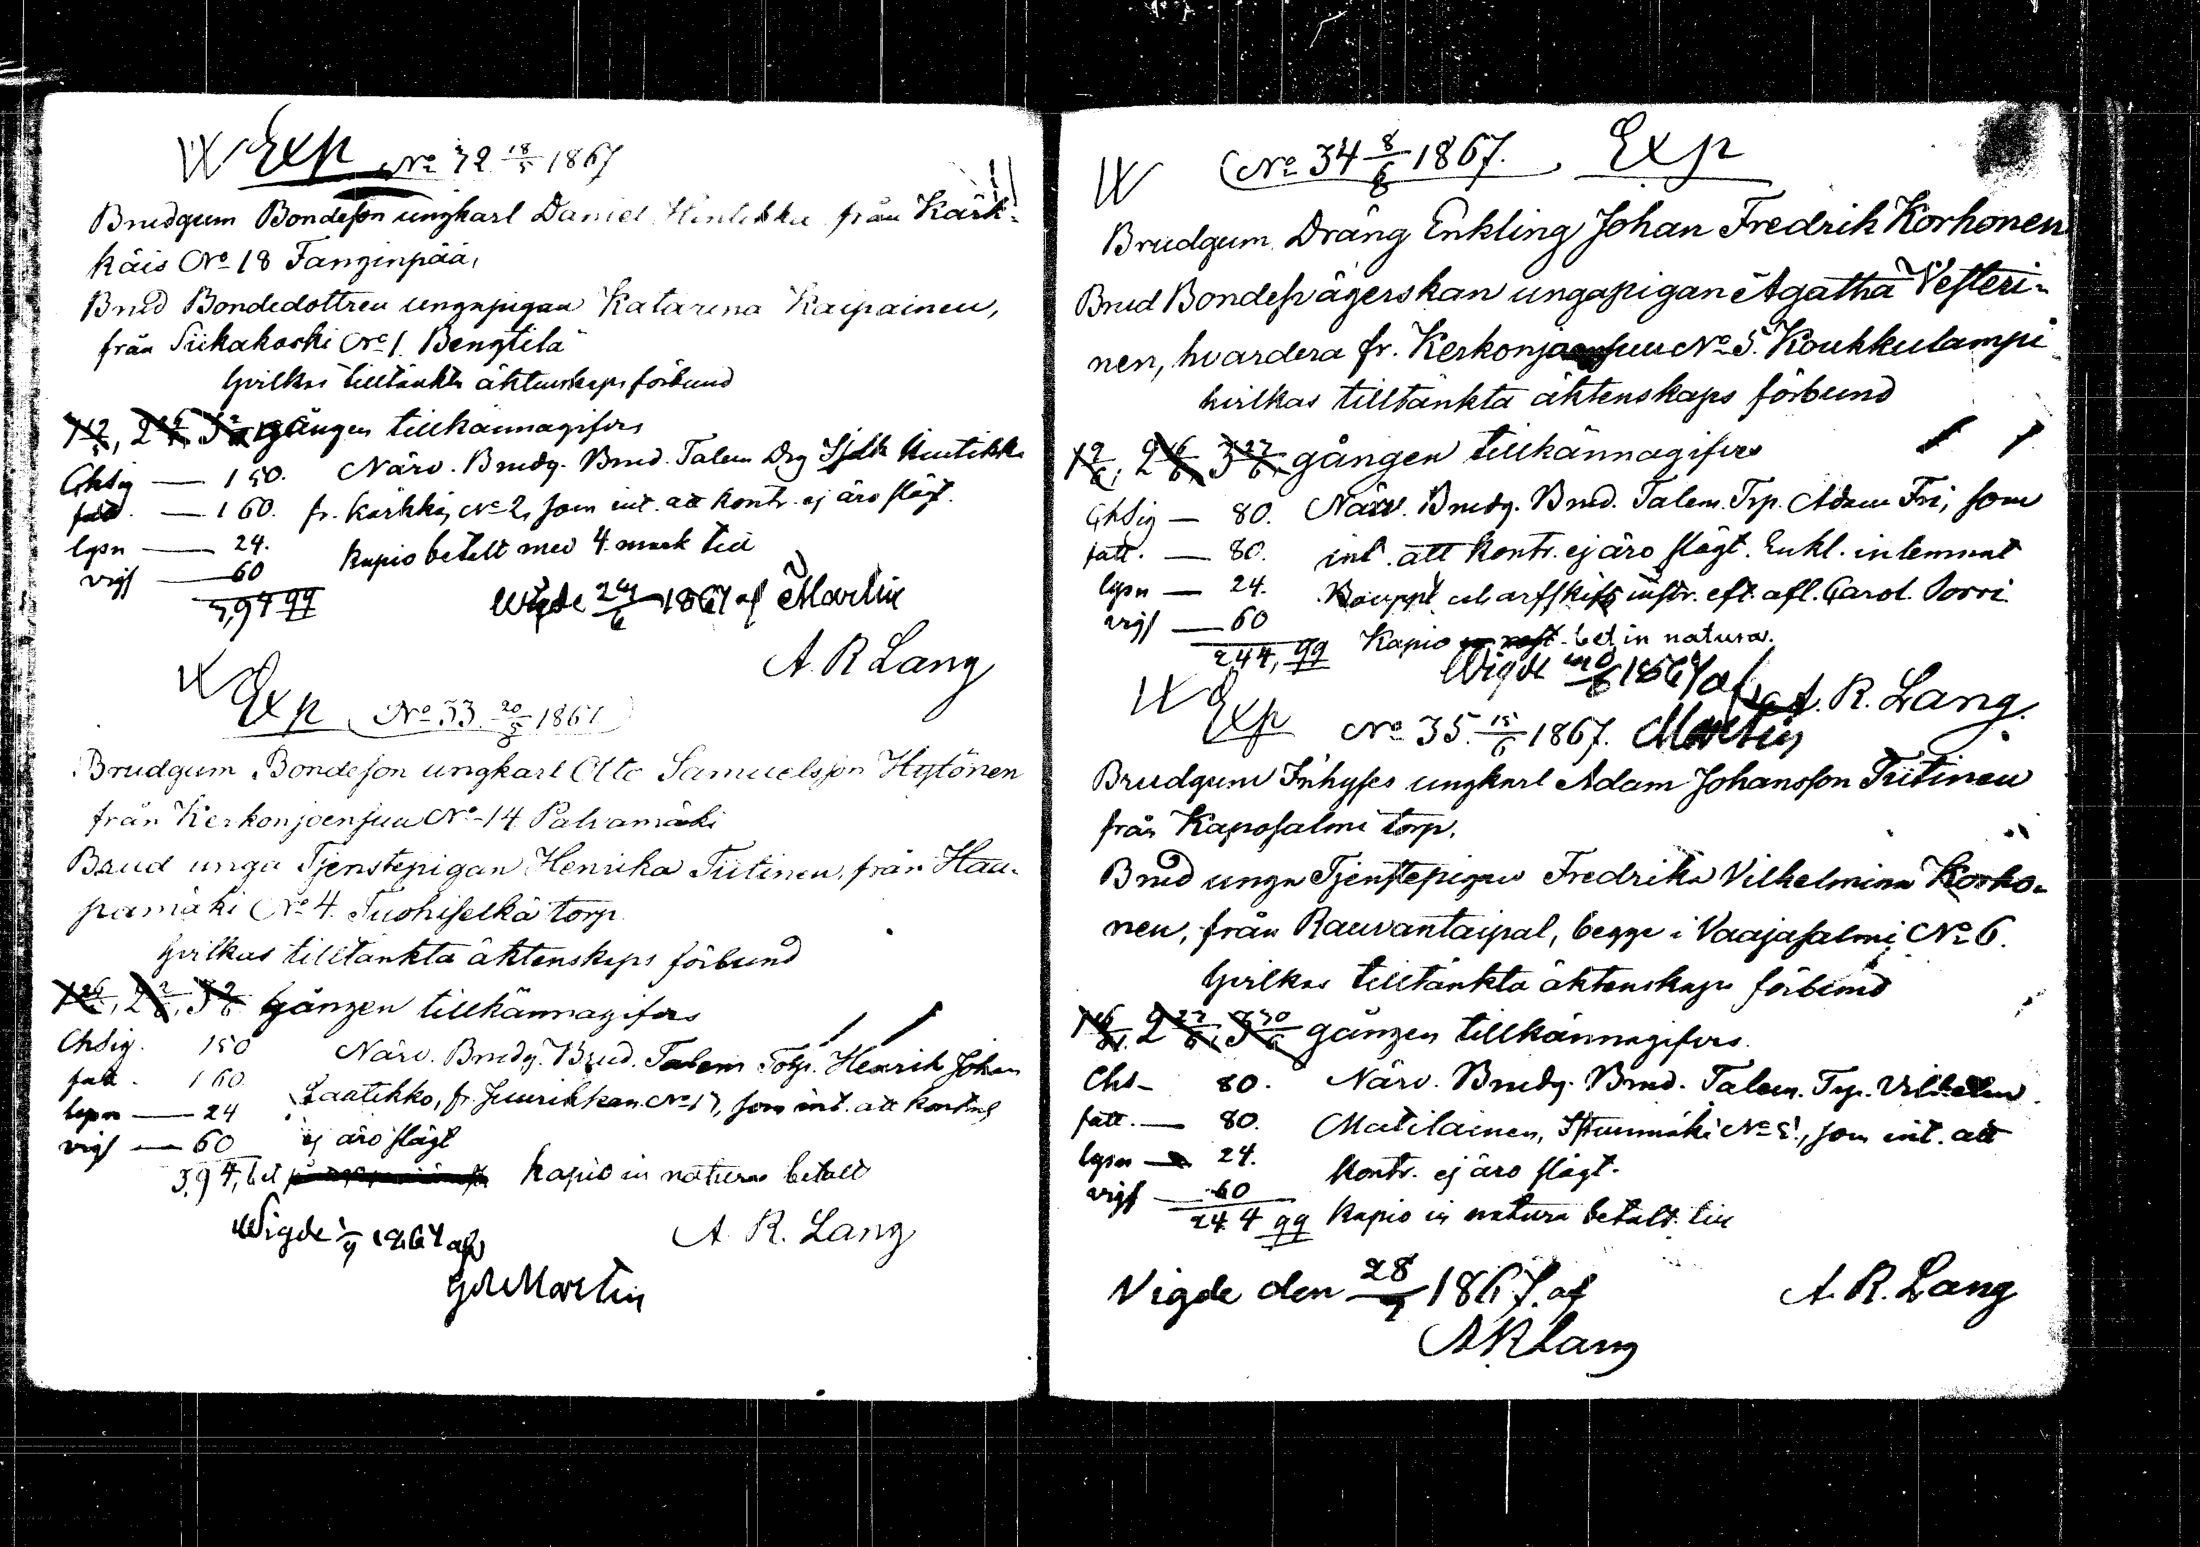 W Exp No 32 18/5 1867
Brudgum Bondeson ungkarl Daniel Hintikka från Kärk-
käis No 18 Tanginpää,
Brud Bondedottren ungapigan Katarina Kaipainen,
från Siikakoski No 1 Bengtilä
hvilkas tilltänkta äktenskaps förbund
gången tillkännagifves
Chsig — 150. Närv. Brudg. Brud. Talem. Drg Hintikka
fatt. — 160. fr. Kärkkäis No 2, som int. att kontr. ej äro slägt.
lysn — 24. Kapio betalt med 4 mark till
vigs — 60
3,94 qq Wigde 24/6 1867 af Martin
A. R Lang
W Exp No 33. 20/5 1867
Brudgum Bondeson ungkarl Otto Samuelsson Hytönen
från Kerkonjoensuu No 14 Palvamäki
Brud unga Tjenstepigan Henrika Tiitinen, från Hau-
pamäki No 4. Tuohiselkä torp.
hvilkas tilltänkta äktenskaps förbund
1 26/5, 2 2/6, 3 9/6 gången tillkännagifves
Chsig. 150 Närv. Brudg. Brud. Talem Henrik Johan
fatt. 160. Laatikko, fr. Juurikkan. No 17, som int. att kontrah
lysn — 24 ej äro slägt
vigs — 60
3,94, bet Kapio in natura betalt
Wigde 1/9 1867 af A. R. Lang
Martin
W No 34 8/6 1867. Exp
Brudgum Dräng Enkling Johan Fredrik Korhonen
Brud Bondesvägerskan ungapigan Agatha Vesteri-
nen, hvardera fr. Kerkonjoensuu No 5. Koukkulampi
hvilkas tilltänkta äktenskaps förbund
1 9/6, 2 16/6, 3 23/6 gången tillkännagifves
Chsig — 80. Närv. Brudg. Brud. Talem. Trp. Adam Fri, som
fatt. — 80. int. att kontr. ej äro slägt. Enkl. inlemnat
lysn — 24. Bouppt. och arfskifts instr. eft. afl. Carol. Sorri
vigs — 60
244, qq Kapio bet. in natura.
Wigde 1867 af A. R. Lang.
Martin
W Exp No 35. 15/6 1867.
Brudgum Inhyses ungkarl Adam Johansson Tiitinen
från Kaposalmi torp.
Brud unga Tjenstepigan Fredrika Vilhelmina Korho-
nen, från Rauvantaipal, begge i Vaajasalmi No 6.
hvilkas tilltänkta äktenskaps förbund
1 16/6, 2 23/6, 3 30/6 gången tillkännagifves.
Chs — 80. Närv. Brudg. Brud. Talem. Trp. Vilhelm
fatt. — 80. Matilainen, Istunmäki No 5., som int. att
lysn — 24. Kontr. ej äro slägt.
vigs — 60
244 qq Kapio in natura betalt till
Vigde den 28/7 1867. af A. R. Lang
A R Lang